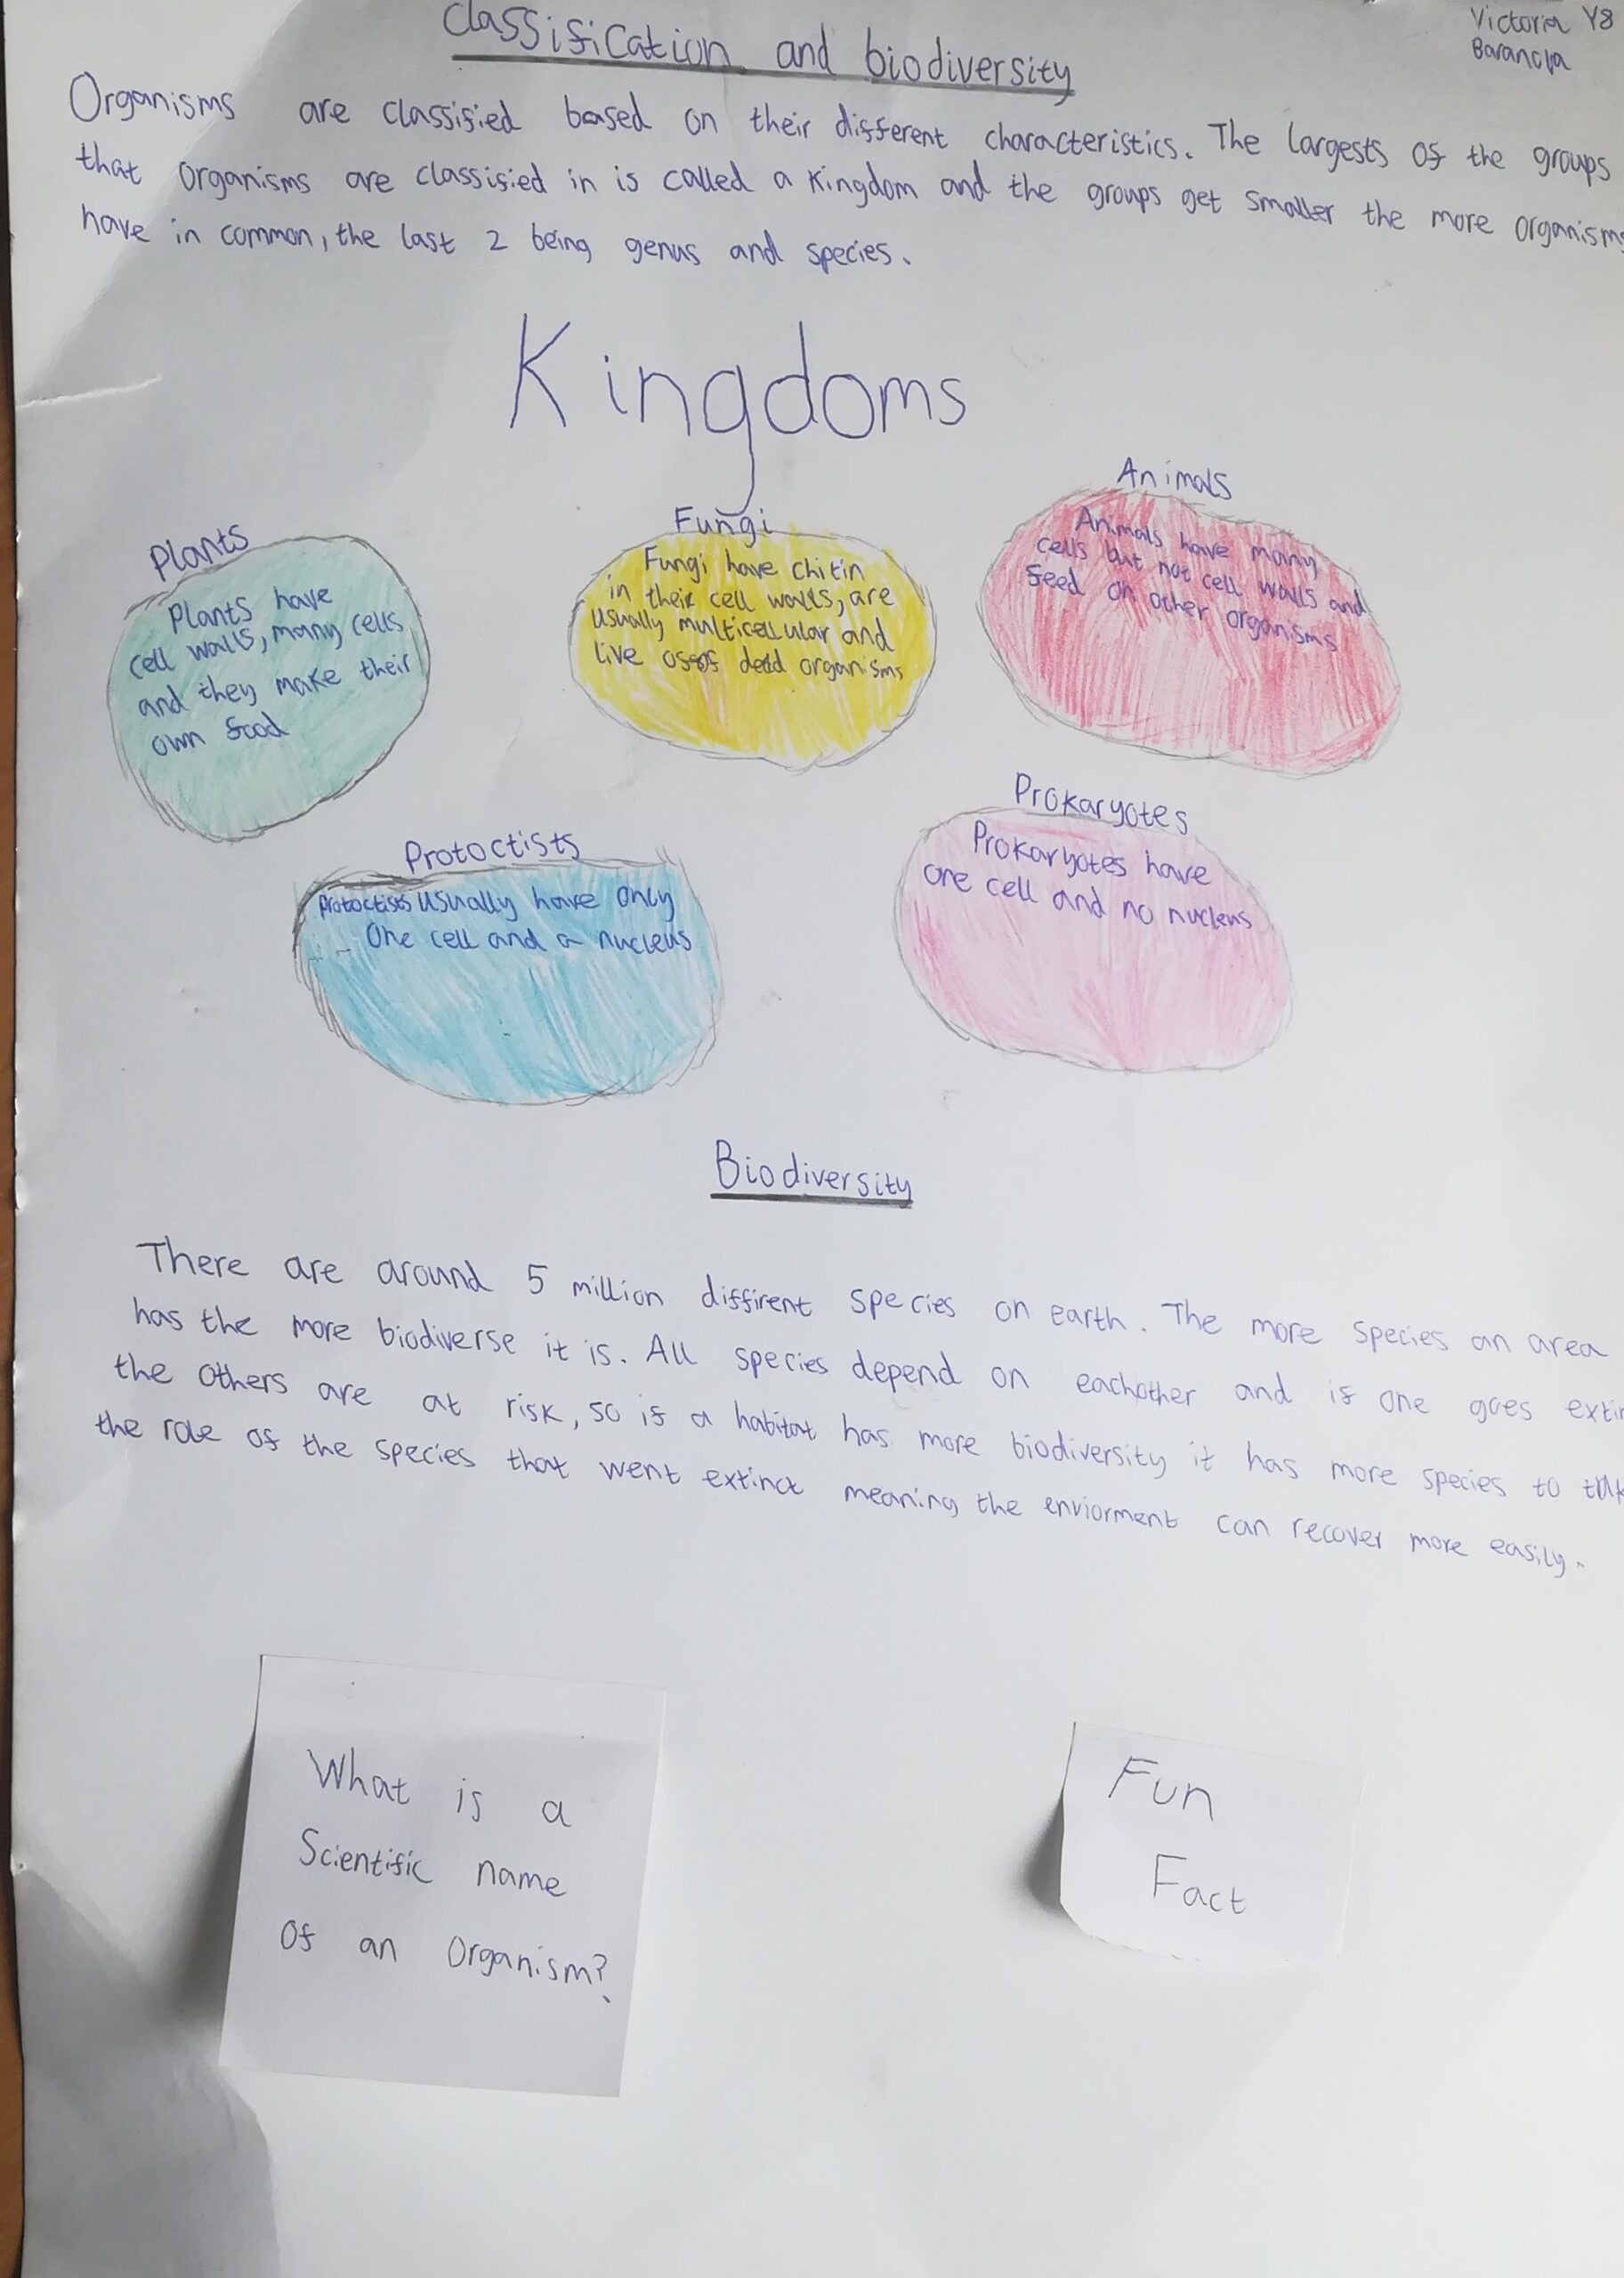 Classification and biodiversity
Victoria Y8
Organisms are classified based on their different characteristics. The largests of the groups
that organisms are classified in is called a Kingdom and the groups get smaller the more organisms
have in common, the last 2 being genus and species.
Kingdoms
Plants
Plants have
cell walls, many cells
and they make their
own food
Fungi
Fungi have chitin
in their cell walls, are
usually multicellular and
live off dead organisms
Animals
Animals have many
cells but not cell walls and
feed on other organisms
Protoctists
Protoctists usually have only
One cell and a nucleus
Prokaryotes
Prokaryotes have
one cell and no nucleus
Biodiversity
There are around 5 million diffirent species on earth. The more species an area
has the more biodiverse it is. All species depend on eachother and if one goes
the others are at risk, so if a habitat has more biodiversity it has more species to
the role of the species that went extinct meaning the enviorment can recover more easily.
What is a
Scientific name
Of an Organism?
Fun
Fact